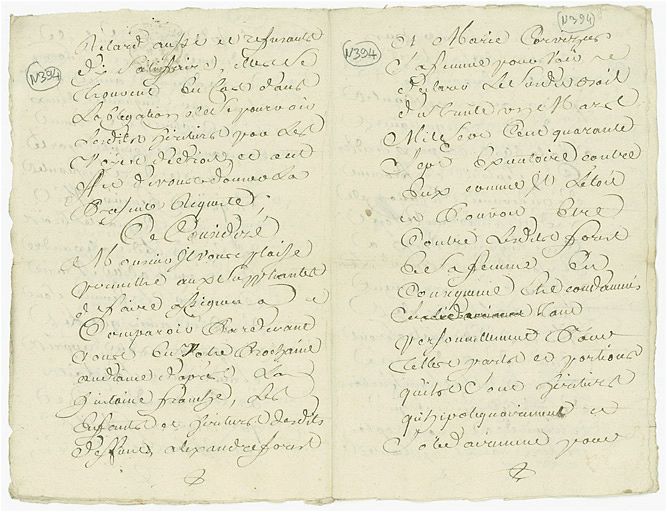 N394
Retard ausse et refusants
de Satisfaire, elles se
trouvent En Cas dans
L'obligation de se pourvoir
Lesdits heritiers pour les
Voies de droit et cet
effet de vous donner la
Presente Requete;
Ce Considéré
Monsieur Il vous plaise
permettre aux Supliantes
de faire assigner a
Comparoir Pardevant
vous En votre Prochaine
audiance d'apres La
quinzaine franche, Les
Enfants et heritiers desdits
deffunts alexandre forest
N394
N394
Et Marie
Sa femme pour Voir
declarer Le Susdit
du trente une Marce
Mil Sept Cent quarante
Sept Executoire contre
Eux comme Il Letoit
et Pouvoit Etre
Contre Lesdits forest
et Sa femme En
Consequence Etre condamnés
tant
personnellement Pour
telles parts et portions
quils Sont heritiers
qu'hipotequairement et
Solidairement pour